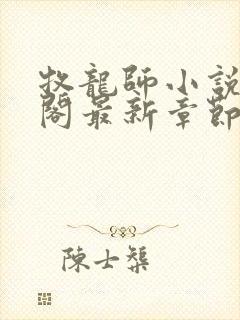 牧龍師小說
閣最新章節
陳士榘